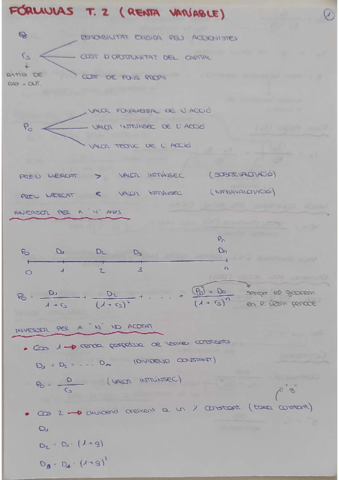 FÓRMULAS T.2 (RENTA VARIABLE)
1
RENDIBILITAT EXIGIDA PELS ACCIONISTES
rs
COST D'OPORTUNITAT DEL CAPITAL
COST DE FONS PROPIS
RATIO DE
PAY-OUT
VALOR FONAMENTAL DE L'ACCIÓ
P0
VALOR INTRÍNSEC DE L'ACCIÓ
VALOR TEÒRIC DE L'ACCIÓ
PREU MERCAT > VALOR INTRÍNSEC (SOBREVALORACIÓ)
PREU MERCAT < VALOR INTRÍNSEC (INFRAVALORACIÓ)
INVERSIÓ PER A "N" ANYS
Pn
P0 D1 D2 D3 Dn
0 1 2 3 n
P0 = D1 / (1+rs) + D2 / (1+rs)² + .... + (Pn + Dn) / (1+rs)ⁿ
INVERSIÓ PER A "N" NO ACOTAT
• Cas 1 → renda perpètua de termes constants
D1 = D2 = .... D∞ (DIVIDEND CONSTANT)
P0 = D / rs (VALOR INTRÍNSEC)
"g"
• Cas 2 → dividend creixent a un % constant (taxa constant)
D1
D2 = D1 · (1+g)
D3 = D1 · (1+g)²